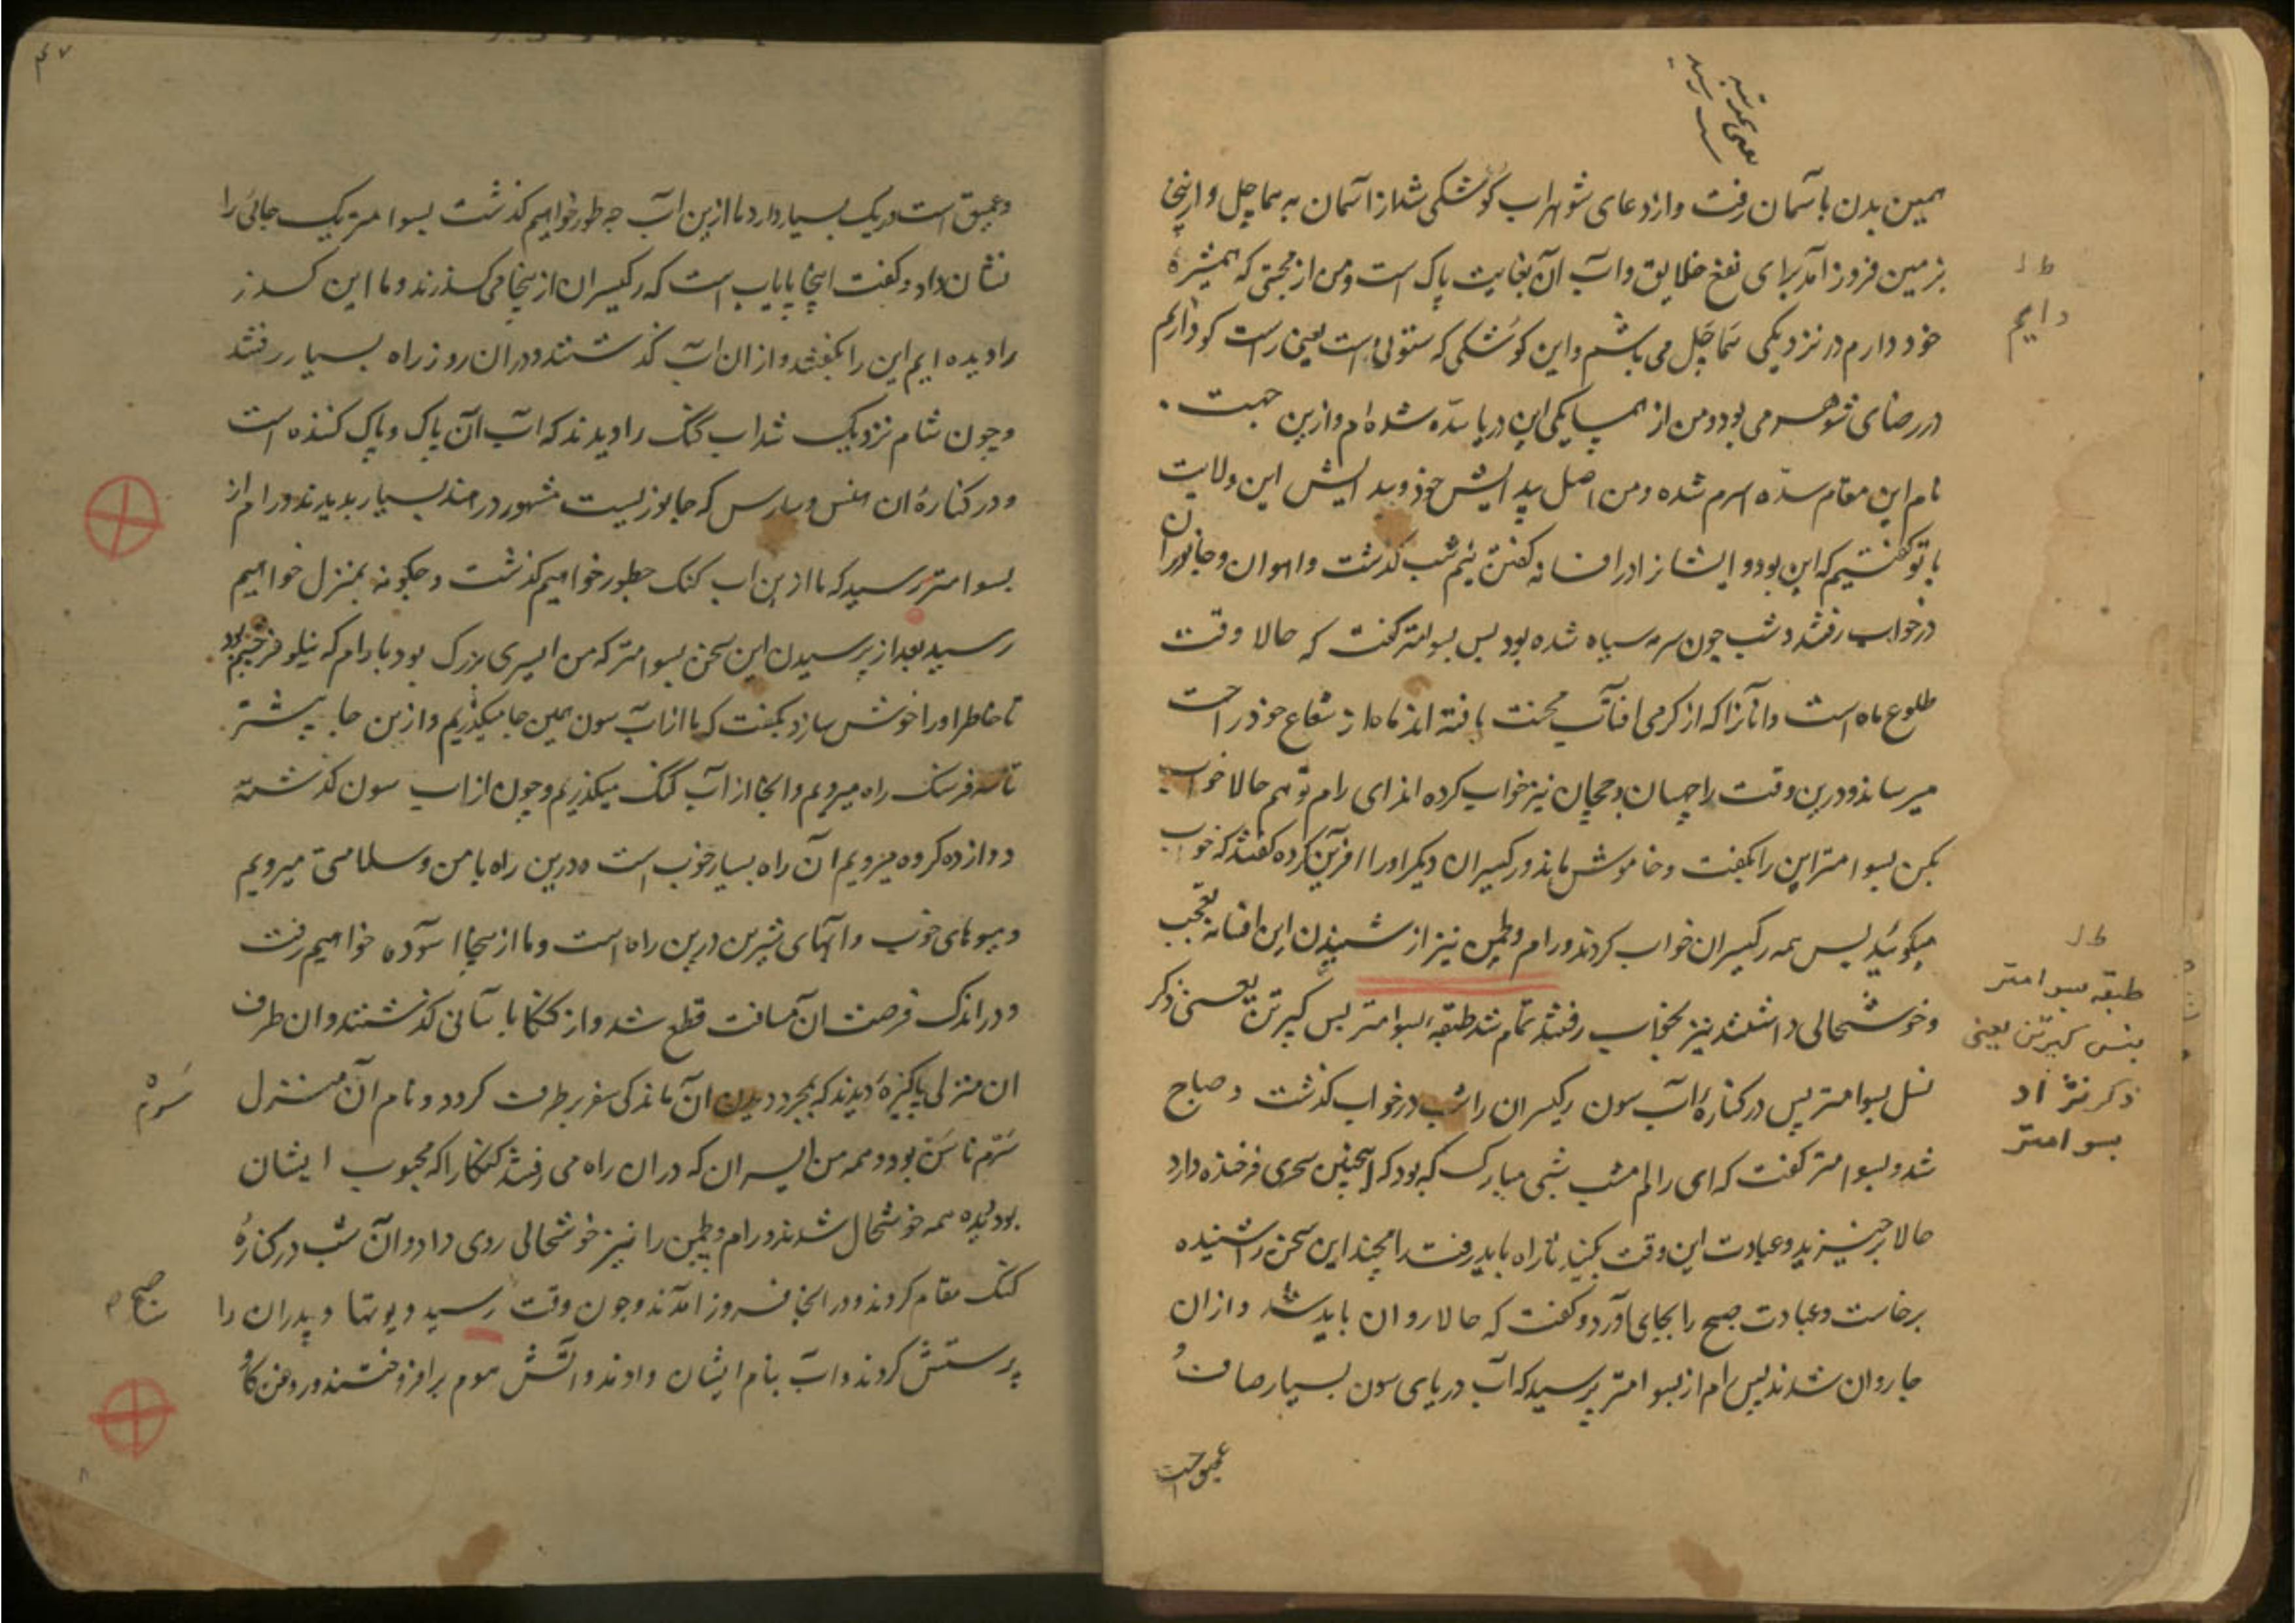 همین بدن بآسمان رفت و از دعای شوهر اب کوشکی شد از آسمان به هماچل و ازینجا
بزمین فرود آمد برای نفع خلایق و آب آن بغایت پاک است و من از محبتی که همشیرهٔ
خود دارم در نزدیکی هماچل می باشم و این کوشکی که ستونی است یعنی راست کو دایم
در رضای شوهر می بود و من از همسایکی این دریا سدّه شده ام و ازین جهت
نام این مقام سدّه اسرم شده و من اصل پیدایش خود و پیدایش این ولایت
با تو کفتیم که این بود و ایشانرا در افسانه کفتن نیم شب کذشت و اهوان و جانوران
در خواب رفتند و شب چون سرمه سیاه شده بود پس بسوامتر کفت که حالا وقت
طلوع ماه است و آنانرا که از کرمی افتاب محنت یافته اند ماه از شعاع خود راحت
میرساند و درین وقت راچهسان و جچان نیز خواب کرده اند ای رام تو هم حالا خواب
بکن بسوامتر این را بکفت و خاموش ماند و رکیسران دیکر او را آفرین کرده کفتند که خوب
میکوئید پس همه رکیسران خواب کردند و رام و لچمن نیز از شنیدن این افسانه تعجب
و خوشحالی داشتند نیز بخواب رفتند تمام شد طبقهٔ بسوامتر بنس کیرتن یعنی ذکر
نسل بسوامتر پس در کنارهٔ آب سون رکیسران را شب در خواب کذشت و صباح
شد و بسوامتر کفت که ای رام امشب شبی مبارک که بود که اینچنین سحری فرخنده دارد
حالا برخیزید و عبادت این وقت بکنید تا راه باید رفت رامچند این سخن را شنیده
برخاست و عبادت صبح را بجای آورد و کفت که حالا روان باید شد و ازان
جا روان شدند پس رام از بسوامتر پرسید که آب دریای سون بسیار صاف و
عمیق است
ط ل
دایم
ط ل
طبقه بسوامتر
بنس کیرتن یعنی
ذکر نژاد
بسوامتر
۴۷
و عمیق است و ریک بسیار دارد ما ازین آب چه طور خواهیم کذشت بسوامتر یک جائی را
نشان داد و کفت اینجا پایاب است که رکیسران ازینجا می کذرند و ما این کذر
را دیده ایم این را بکفتند و ازان آب کذشتند و دران روز راه بسیار رفتند
و چون شام نزدیک شد اب کنک را دیدند که آب آن پاک و پاک کننده است
و در کنارهٔ ان هنس و سارس که جانوریست مشهور در هند بسیار بدیدند و رام از
بسوامتر پرسید که ما ازین اب کنک چطور خواهیم کذشت و چکونه بمنزل خواهیم
رسید بعد از پرسیدن این سخن بسوامتر که من ایسری بزرک بود با رام که نیلوفر چشم بود
تا خاطر او را خوش سازد بکفت که ما از آب سون همین جا میکذریم و ازین جا پیشتر
تا سه فرسنک راه میرویم و انجا از آب کنک میکذریم و چون از اب سون کذشته
دوازده کروه میرویم آن راه بسیار خوب است و درین راه بامن و سلامتی میرویم
و میوهای خوب و ابهای شیرین درین راه است و ما ازینجا آسوده خواهیم رفت
و در اندک فرصت ان مسافت قطع شد و از کنکا بآسانی کذشتند و ان طرف
ان منزلی پاکیزه دیدند که بمجرد دیدن آن ماندکی سفر برطرف کردد و نام آن منزل
سرم ناسن بود و همه من ایسران که دران راه می رفتند کنکا را که محبوب ایشان
بود دیده همه خوشحال شدند و رام و لچمن را نیز خوشحالی روی داد و آن شب در کنارهٔ
کنک مقام کردند و در انجا فرود آمدند و چون وقت رسید دیوتها و پدران را
پرستش کردند و آب بنام ایشان دادند و آتش هوم برافروختند و روغن کاو
سرم
صبح